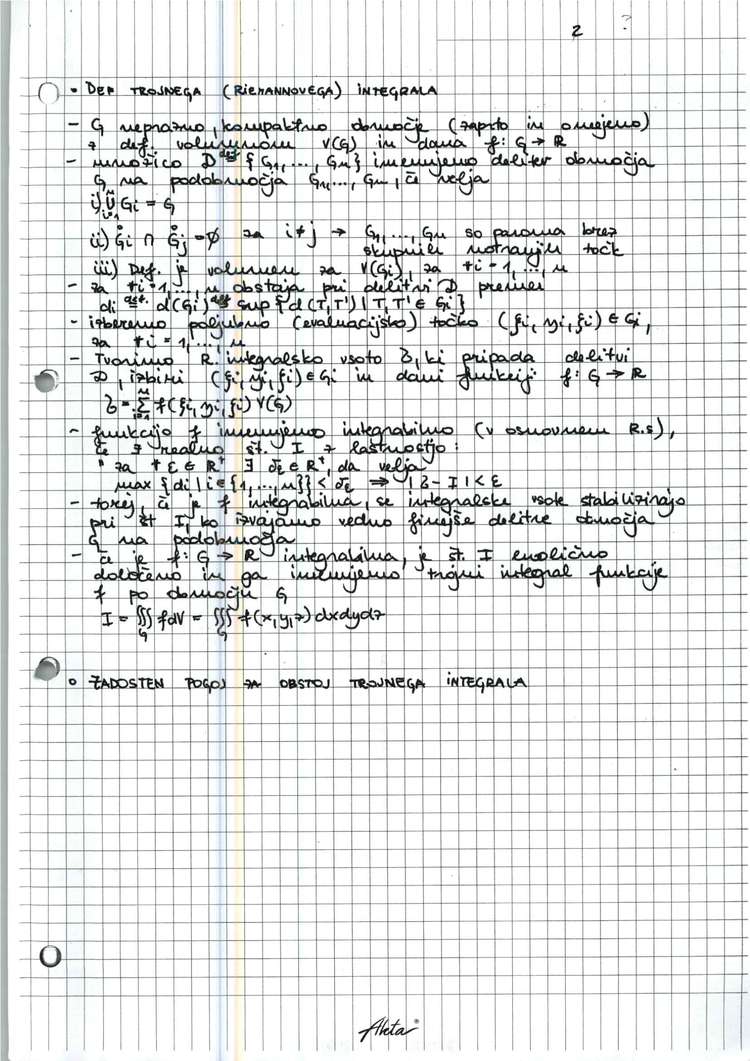 2 ?
• DEF TROJNEGA (RIEMANNOVEGA) INTEGRALA
- G neprazno, kompaktno območje (zaprto in omejeno)
z def. volumnom V(G) in dana f: G → R
- množico D def= {G1, ..., Gn} imenujemo delitev območja
G na podobmočja G1, ..., Gn, če velja
i) ⋃ⁿᵢ₌₁ Gi = G
ii) G̊i ∩ G̊j = ∅ za i ≠ j → G1, ..., Gn so paroma brez
skupnih notranjih točk
iii) Def. je volumen za V(Gi), za ∀i = 1, ..., n
- za ∀i = 1, ..., n obstaja pri delitvi D premer
di def= d(Gi) def= sup {d(T, T') | T, T' ∈ Gi}
- izberemo poljubno (evaluacijsko) točko (ξi, ηi, ζi) ∈ Gi,
za ∀i = 1, ..., n
- Tvorimo R. integralsko vsoto Z, ki pripada delitvi
D, izbiri (ξi, ηi, ζi) ∈ Gi in dani funkciji f: G → R
Z = Σⁿᵢ₌₁ f(ξi, ηi, ζi) V(Gi)
- funkcijo f imenujemo integrabilno (v osnovnem R.s),
če ∃ realno št. I z lastnostjo:
" za ∀ ε ∈ R⁺ ∃ δε ∈ R⁺, da velja
max {di | i ∈ {1, ..., n}} < δε ⇒ |Z - I| < ε
- torej, če je f integrabilna, se integralske vsote stabilizirajo
pri št I, ko izvajamo vedno finejše delitve območja
G na podobmočja
- če je f: G → R integrabilna, je št. I enolično
določeno in ga imenujemo trojni integral funkcije
f po domočju G
I = ∭G f dV = ∭G f(x, y, z) dxdydz
• ZADOSTEN POGOJ ZA OBSTOJ TROJNEGA INTEGRALA
Aheta